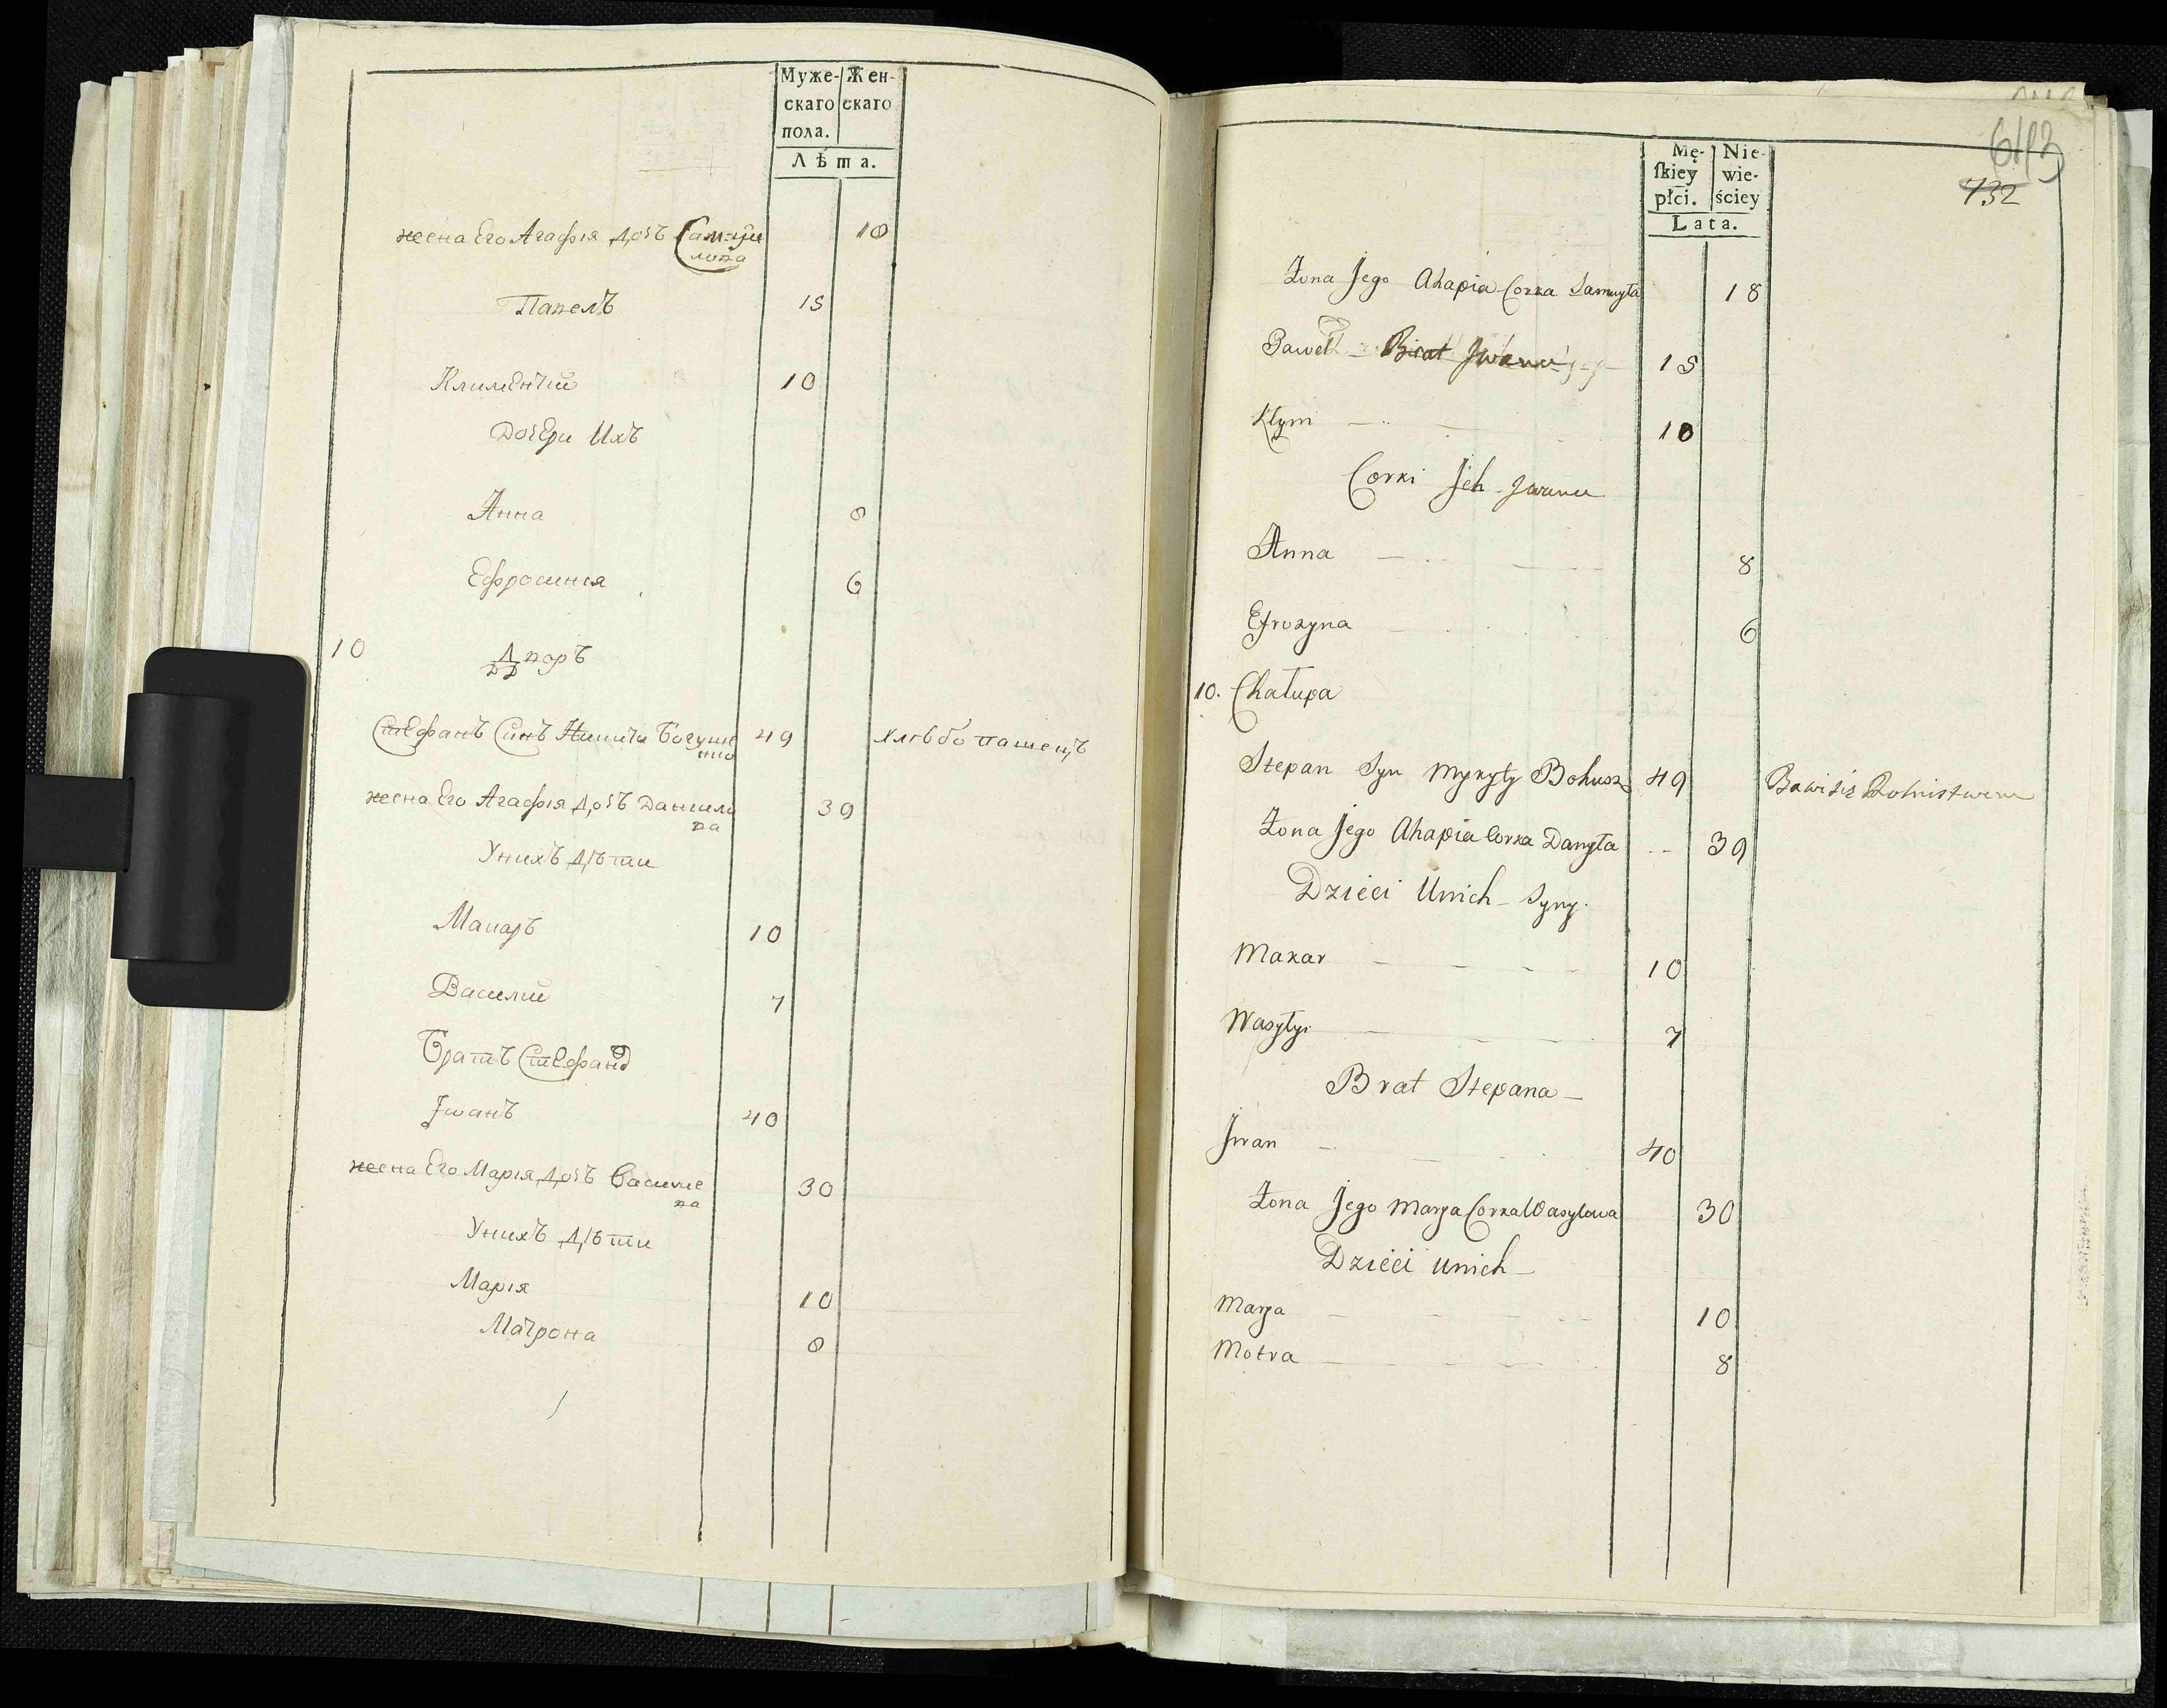 Муже- Жен-
скаго скаго
пола.
Лѣта.
жена Его Агафія дочь Самуй 18
лова
Павелъ 15
Климентий 10
Дочери Ихъ
Анна 8
Ефросинія 6
10 Дворъ
Стефанъ Синъ Никити 49 хлѣбопашецъ
жена Его Агафія дочь Данило 39
ва
Унихъ дѣти
Макаръ 10
Василий 7
Братъ Стефана
Іванъ 40
жена Его Марія дочь Василие 30
ва
Унихъ дѣти
Марія 10
Матрона 8
Mę- Nie-
ſkiey wie-
płci. ściey
Lata.
613
732
Żona Jego Ahapia Corka Samuyła 18
Paweł Brat Jwana 15
Kłym 10
Corki Jch Jwana
Anna 8
Efrozyna 6
10. Chałupa
Stepan Syn Mykyty Bohusz 49 Bawi się Rolnistwem
Żona Jego Ahapia Corka Danyła 39
Dzieci Unich Syny.
Makar 10
Wasyłyi 7
Brat Stepana
Jwan 40
Żona Jego Marya Corka Wasylowa 30
Dzieci unich
Marya 10
Motra 8